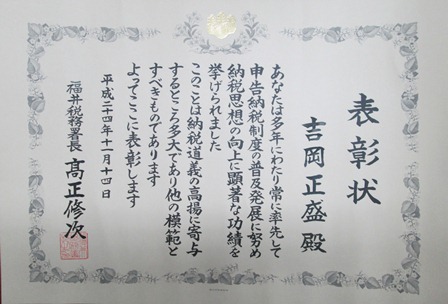 表彰状
吉岡正盛殿
あなたは多年にわたり常に率先して
申告納税制度の普及発展に努め
納税思想の向上に顕著な功績を
挙げられました
このことは納税道義の高揚に寄与
するところ多大であり他の模範と
すべきものであります
よってここに表彰します
平成二十四年十一月十四日
福井税務署長 髙正修次